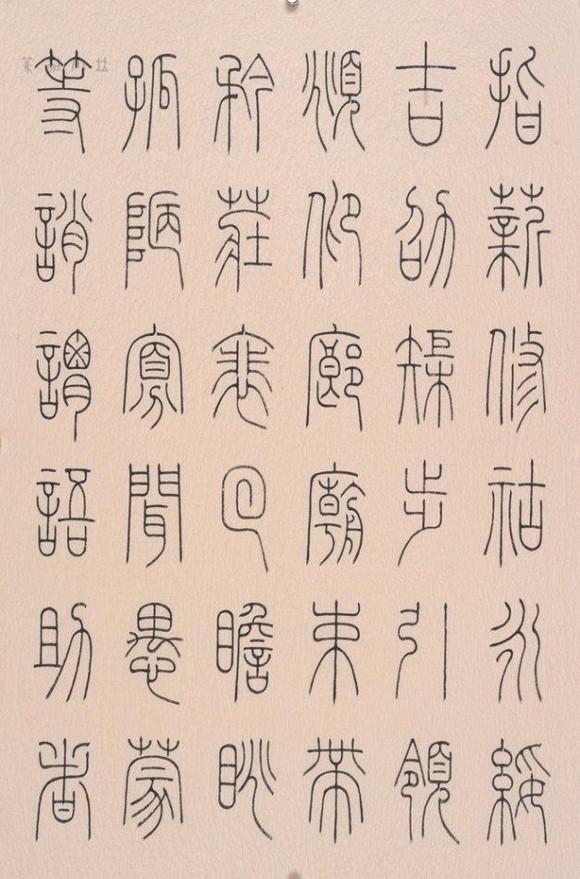 指薪修祜永綏
吉劭榘步引領
頫仰廊廟束帶
矜莊裵回瞻眺
孤陋寡聞愚蒙
等誚謂語助者